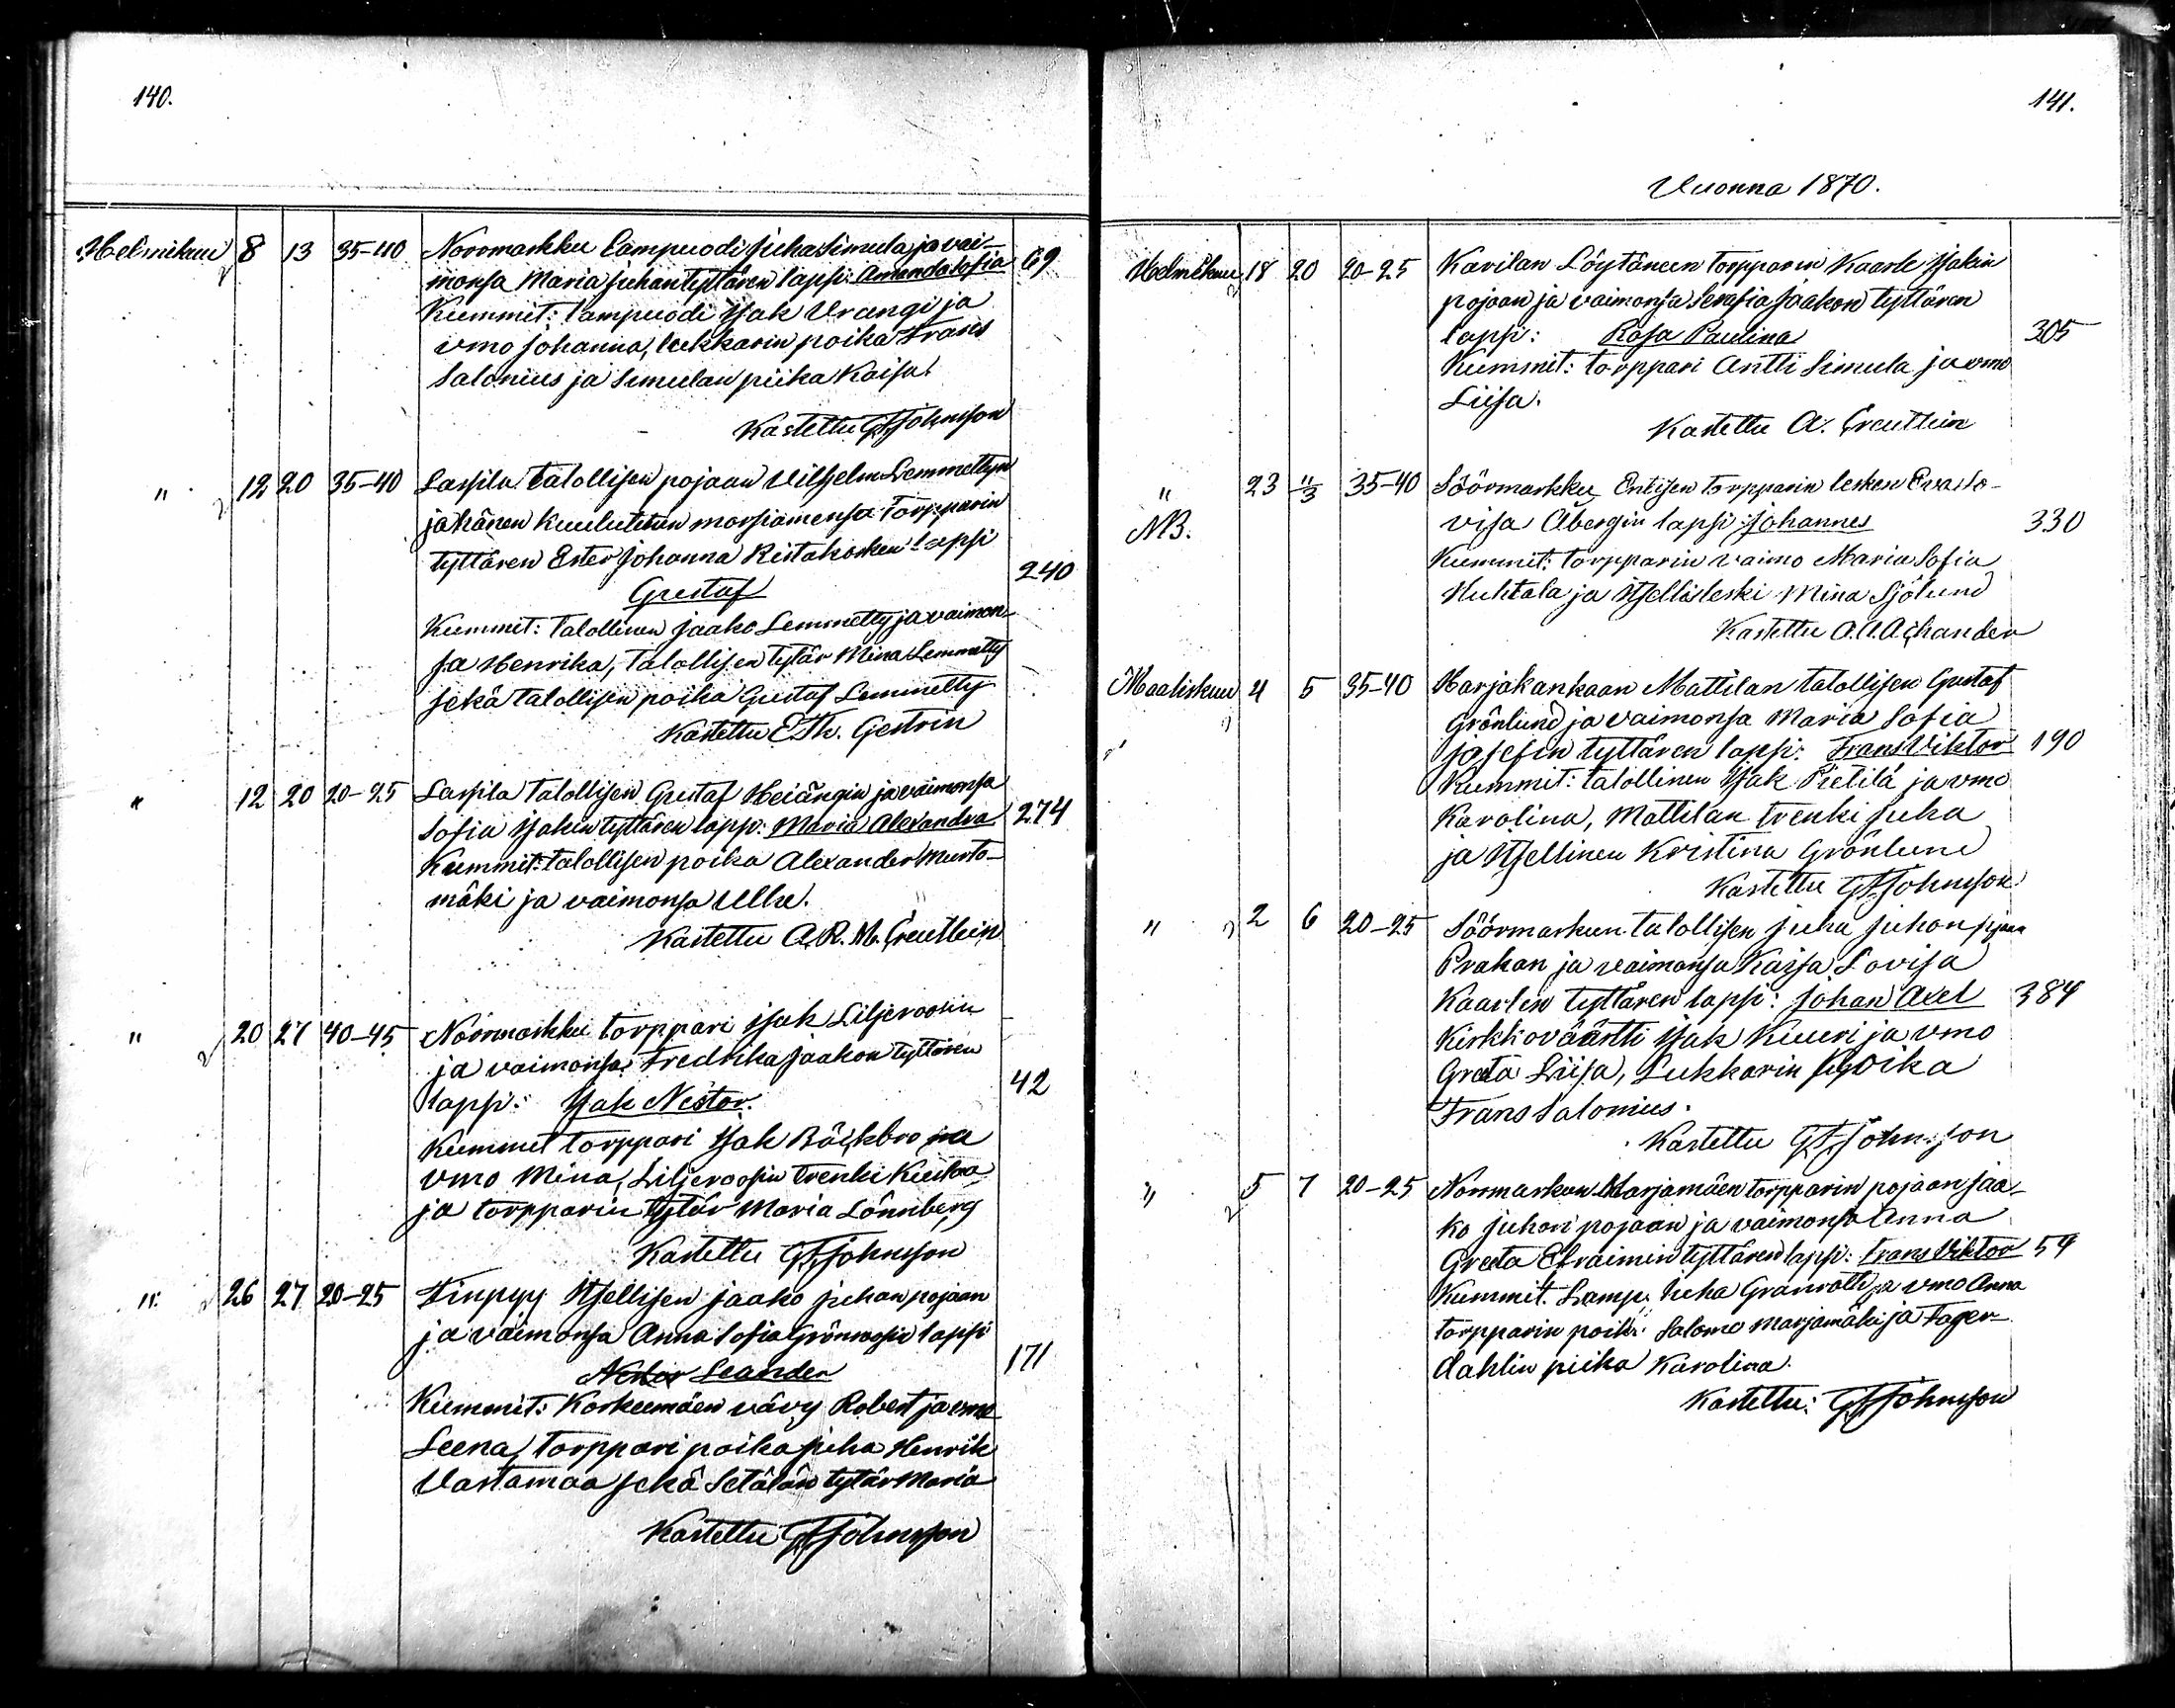 140.
Helmikuu 8 13 35-40 Noormarkku Lampuodi Juha Simula ja vai-
monsa Maria Juhantyttären lapsi: Amanda Sofia 69
Kummit: Lampuodi Isak Vrangi ja
vmo Johanna, lukkarin poika Frans
Salonius ja Simulan piika Kaisa.
Kastettu GFJohnsson
" 12 20 35-40 Lassila talollisen pojaan Vilhelm Lemmettyn
ja hänen kuulutetun morsiamensa torpparin
tyttären Ester Johanna Ristakosken lapsi
Gustaf 240
Kummit: Talollinen Jaako Lemmetty ja vaimon-
sa Henrika, talollisen tytär Mina Lemmetty
sekä talollisen poika Gustaf Lemmetty
Kastettu E.Th. Gestrin
" 12 20 20-25 Lassila talollisen Gustaf Heiängin ja vaimonsa
Sofia Isakin tyttären laps: Maria Alexandra 274
Kummit: talollisen poika Alexander Murto-
mäki ja vaimonsa Ulla.
Kastettu A.R.M. Greutlein
" 20 27 40-45 Noormarkku torppari Isak Liljeroosin
ja vaimonsa Fredrika Jaakon tyttären
lapsi: Isak Nestor. 42
Kummit torppari Isak Bäckbro ja
vmo Mina, Liljeroosin trenki Kustaa
ja torpparin tytär Maria Lönnberg
Kastettu GFJohnsson
" 26 27 20-25 Finpyy Itsellisen Jaako Juhan pojaan
ja vaimonsa Anna Sofia Grönroosin lapsi
Nestor Leander 171
Kummit: Korkeemäen vävy Robert ja vmo
Leena, torppari poika Juha Henrik
Vastamaa sekä Setälän tytär Maria
Kastettu GFJohnsson
141.
Vuonna 1870.
Helmikuu 18 20 20-25 Karilan Löytäneen torpparin Kaarle Isakin
pojaan ja vaimonsa Serafia Jaakon tyttären
lapsi: Rosa Paulina 305
Kummit: torppari Antti Simula ja vmo
Liisa.
Kastettu A. Greutlein
" 23 11/3 35-40 Söörmarkku Entisen torpparin lesken Eva Lo-
NB. visa Åbergin lapsi: Johannes 330
Kummit: torpparin vaimo Maria Sofia
Huhtala ja Itsellisleski Mina Sjölund
Kastettu A.A. Achander
Maaliskuu 4 5 35-40 Harjakankaan Mattilan talollisen Gustaf
Grönlund ja vaimonsa Maria Sofia
Josefin tyttären lapsi: Frans Viktor 190
Kummit: talollinen Isak Pietilä ja vmo
Karolina, Mattilan trenki Juha
ja Itsellinen Kristina Grönlund
Kastettu GFJohnsson
" 2 6 20-25 Söörmarkun talollisen Juha Juhan pojaan
Prakan ja vaimonsa Kaisa Lovisa
Kaarlen tyttären lapsi: Johan Axel 384
Kirkkoväärtti Isak Kuuri ja vmo
Greta Liisa, Lukkarin poika
Frans Salonius.
Kastettu GFJohnsson
" 5 7 20-25 Normarkun Marjamäen torpparin pojaan Jaa-
ko Juhan pojaan ja vaimonsa Anna
Greta Efraimin tyttären lapsi: Frans Viktor 54
Kummit. Lamp. Juha Granroth ja vmo Anna
torpparin poika Salomo Marjamäki ja Fager-
dahlin piika Karolina.
Kastettu: GFJohnsson